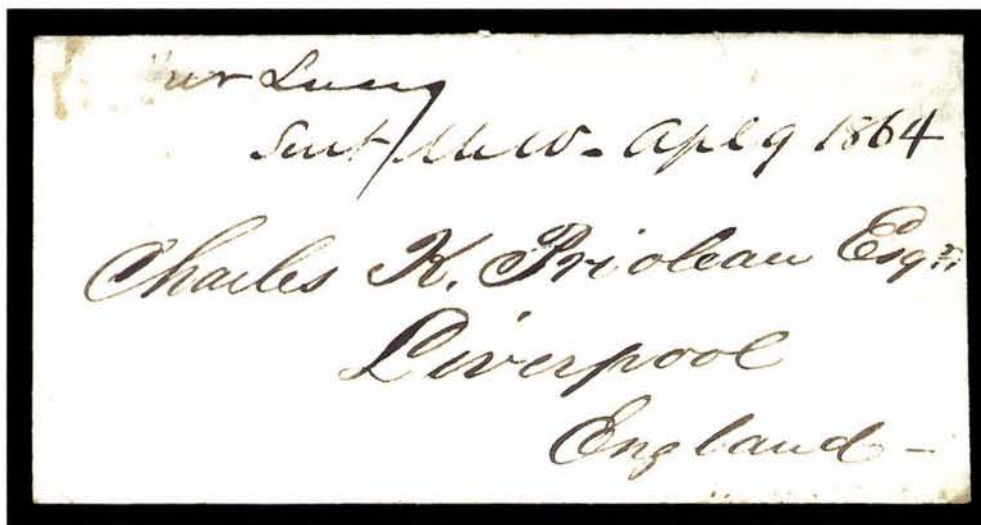 Apl 9 1864
Charles K. Prioleau Esqr.
Liverpool
England -